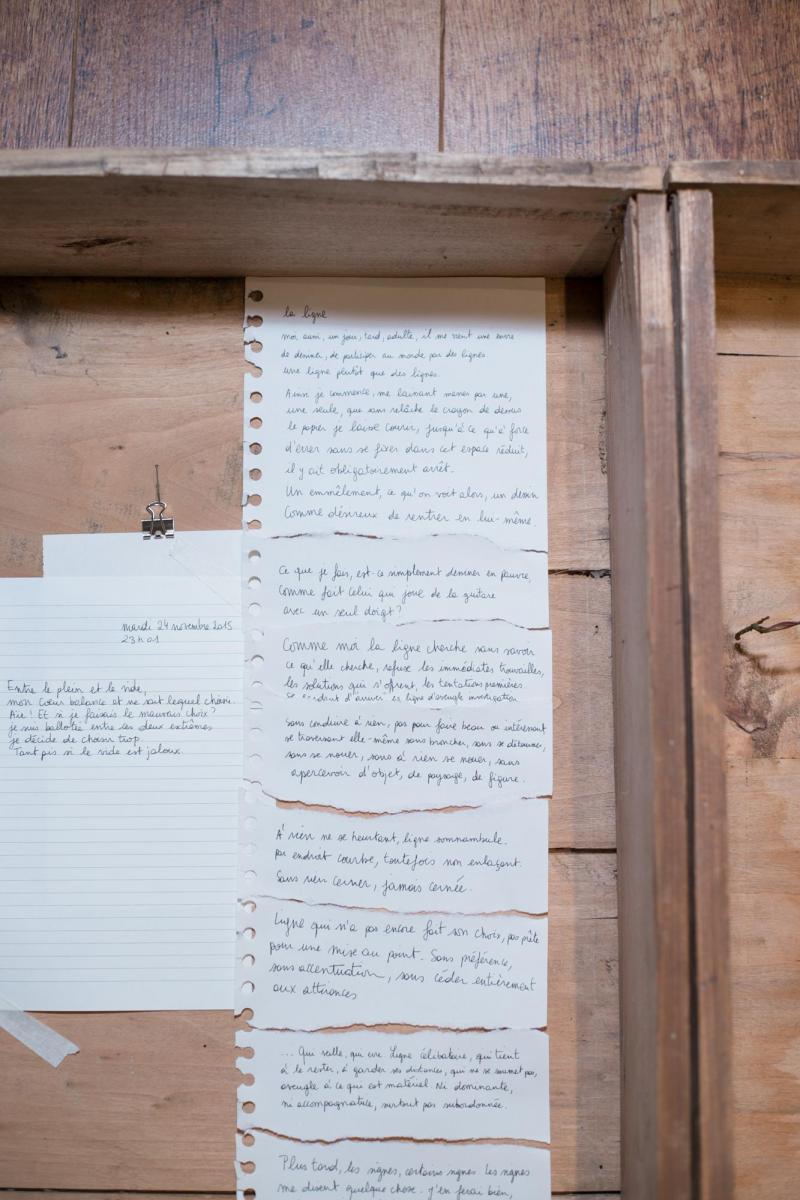 mardi 24 novembre 2015
23h01
Entre le plein et le vide,
mon cœur balance et ne sait lequel choisir.
Aïe! Et si je faisais le mauvais choix?
je suis ballotée entre ces deux extrêmes,
je décide de choisir trop.
Tant pis si le vide est jaloux.
la ligne
moi, aussi, un jour, tard, adulte, il me vient une envie
de dessiner, de participer au monde par des lignes.
une ligne plutôt que des lignes.
Ainsi je commence, me laissant mener par une,
une seule, que sans relâche le crayon de dessus
le papier je laisse courir, jusqu'à ce qu'à force
d'érrer sans se fixer dans cet espace réduit,
il y ait obligatoirement arrêt.
Un emmêlement, ce qu'on voit alors, un dessin
Comme désireux de rentrer en lui-même.
Ce que je fais, est-ce simplement dessiner en pauvre,
comme fait celui qui joue de la guitare
avec un seul doigt?
Comme moi la ligne cherche sans savoir
ce qu'elle cherche, refuse les immédiates trouvailles,
les solutions qui s'offrent, les tentations premières.
d'arriver" ligne d'aveugle investigation
sans conduire à rien, pas pour faire beau ou intéressant
se traversant elle-même sans broncher, sans se détourner,
sans se nouer, sans à rien se nouer, sans
apercevoir d'objet, de paysage, de figure.
A rien ne se heurtant, ligne somnambule.
par endroit courbe, toutefois non enlaçant.
Sans rien cerner, jamais cernée.
Ligne qui n'a pas encore fait son choix, pas prête
pour une mise au point. Sans préférence,
sans accentuation, sans céder entièrement
aux attirances
... Qui veille, qui erre. Ligne célibataire, qui tient
à le rester, à garder ses distances, qui ne se soumet pas,
aveugle à ce qui est matériel. Ni dominante,
ni accompagnatrice, surtout pas subordonnée.
Plus tard, les signes, certains signes. Les signes
me disent quelque chose. J'en ferai bien,